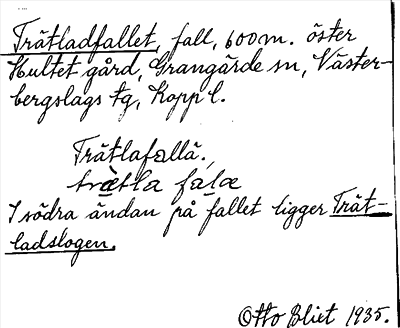 Trätladfallet, fall, 600 m. öster
Hultet gård, Grangärde sn, Väster-
bergslags tg, Kopp l.
Trätlafallä.,
trætla falæ
I södra ändan på fallet ligger Trät-
ladslogen.
Otto Bliet 1935.